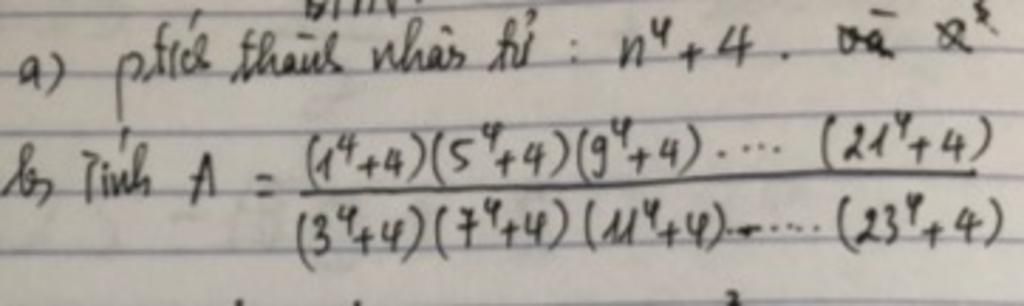 a) ptích thành nhân tử : n⁴ + 4 . và x⁵
b, Tính A = \frac{(1⁴+4)(5⁴+4)(9⁴+4) . .... (21⁴+4)}{(3⁴+4)(7⁴+4)(11⁴+4)....... (23⁴+4)}